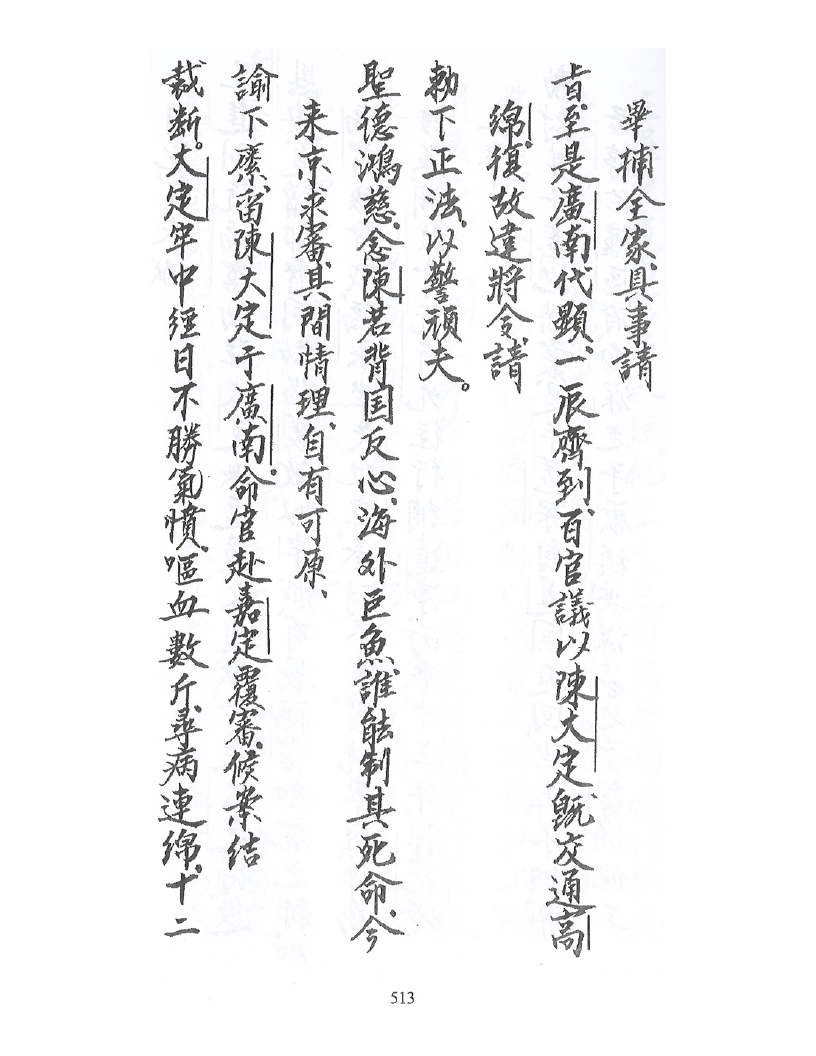 畢捕全家、具事請
旨、至是廣南代顯、一辰齊到、百官議以陳大定旣交通高
綿、復故違將令、請
勅下正法、以警頑夫。
聖德鴻慈、念陳若背国反心、海外巨魚、誰能制其死命、今
来京求審、其間情理、自有可原、
諭下廩、留陳大定于廣南、命官赴嘉定覆審、候案结
裁断。大定牢中經日不勝氣憤、嘔血数斤、尋病連綿、十二
513